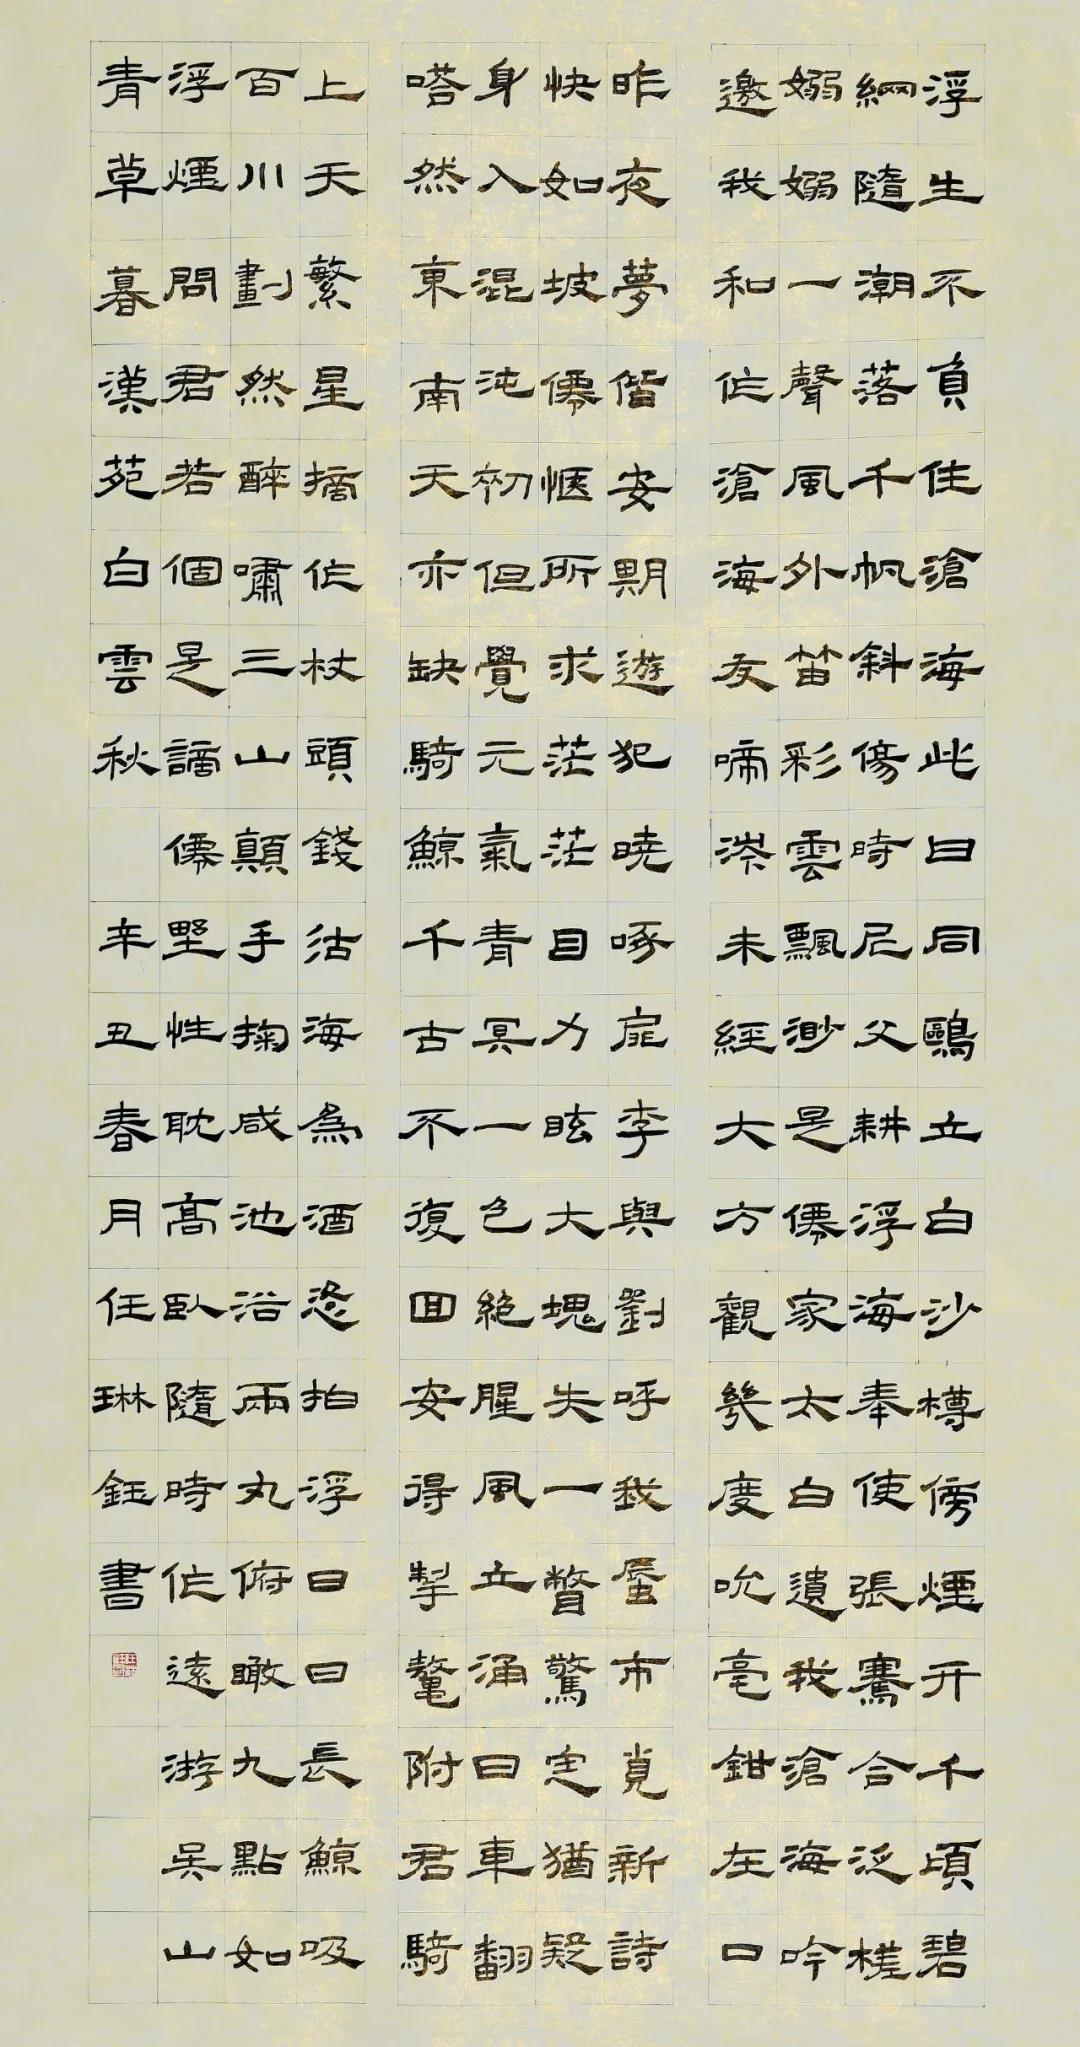 浮生不負佳滄海此日同鷗立白沙樽傍煙开千頃碧
網隨潮落千帆斜傷時尼父耕浮海奉使張騫合泛槎
嫋嫋一聲風外笛彩雲飄渺是僊家太白遺我滄海吟
邀我和作滄海友啼涔未經大方觀幾度吮亳鉗在口
昨夜夢偕安期遊犯曉啄扉李與劉呼我蜃市覓新詩
快如坡僊愜所求茫茫目力眩大塊失一瞥驚定猶疑
身入混沌初但覺元氣青冥一色絕腥風立涌日車翻
嗒然東南天亦缺騎鯨千古不復回安得掣鼇附君騎
上天繁星摘作杖頭錢沽海為酒恣拍浮日日長鯨吸
百川劃然醉嘯三山顛手掬咸池浴兩丸俯瞰九點如
浮煙問君若個是謫僊野性耽高臥隨時作遠游吳山
青草暮漢苑白雲秋 辛丑春月任琳鈺書